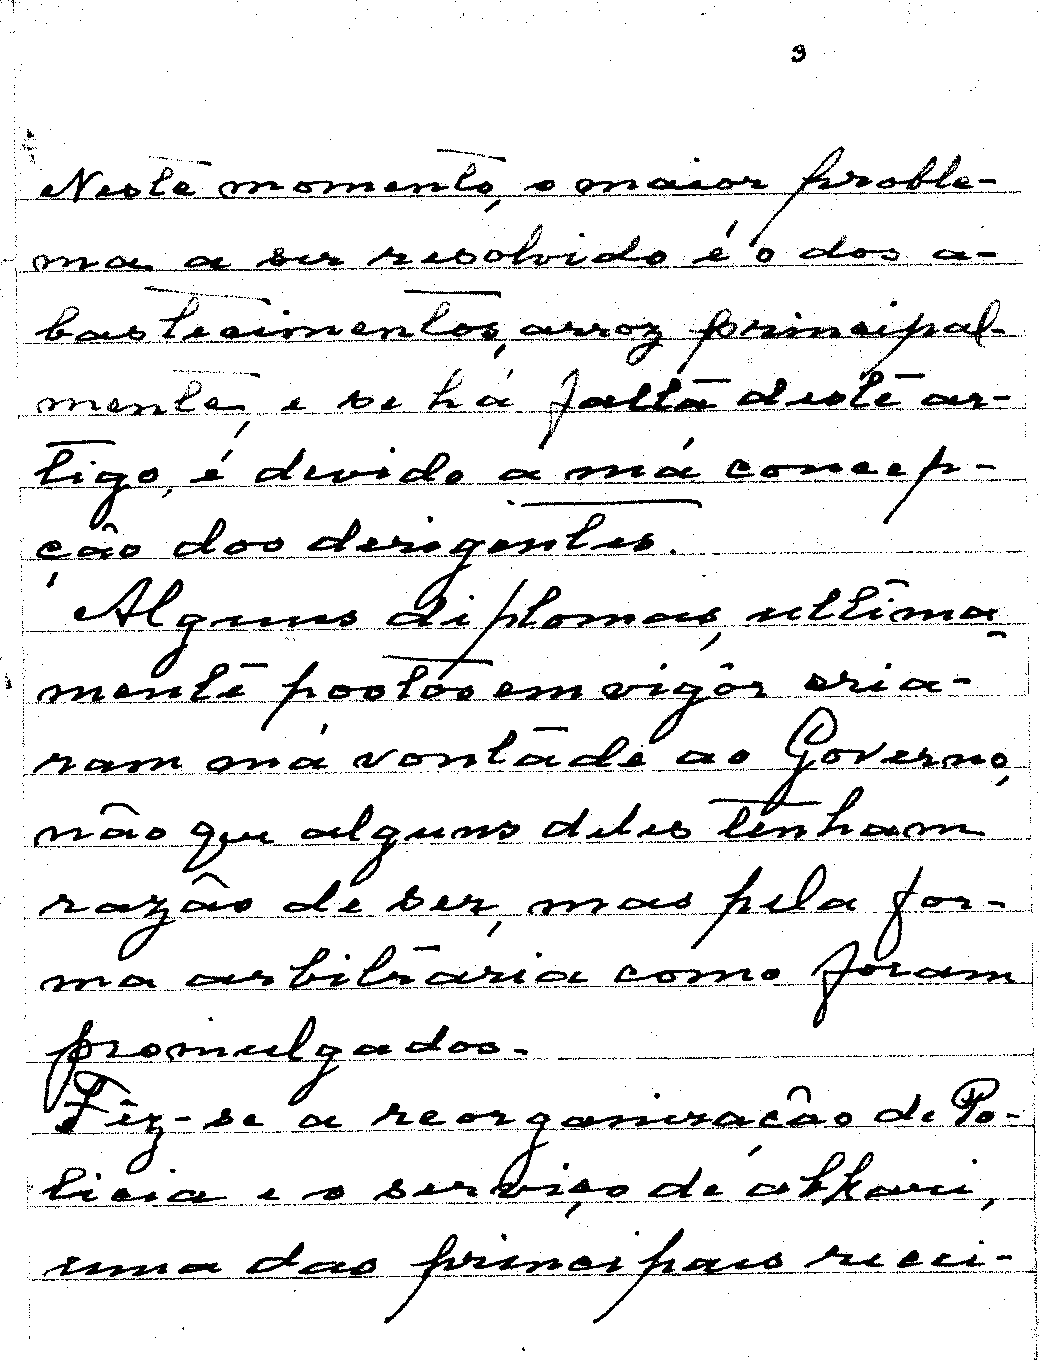 3
Neste momento, o maior proble-
ma a ser resolvido é o dos a-
bastecimentos, arroz principal-
mente, e se há falta deste ar-
tigo, é devido a má concep-
ção dos derigentes.
Alguns diplomas, ultima-
mente postos em vigôr cria-
ram má vontade ao Governo,
não que alguns deles tenham
razão de ser, mas pela for-
ma arbitrária como foram
promulgados.
Fêz-se a reorganização de Po-
licia e o serviço de abkari,
uma das principais recei-